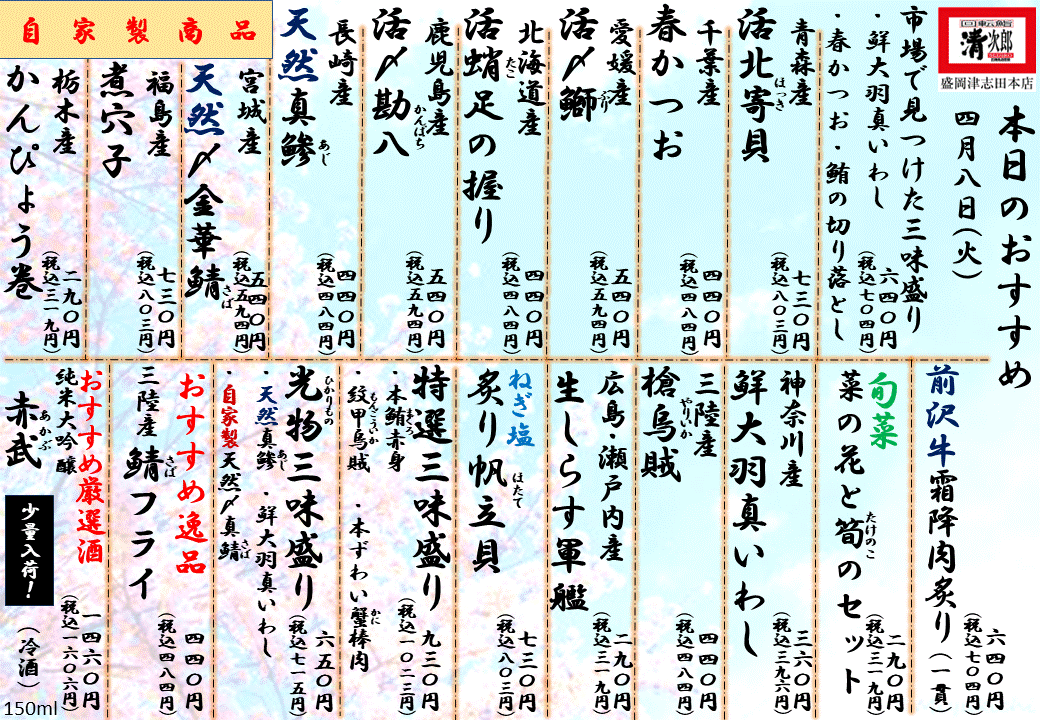 回転鮨
清次郎
盛岡津志田本店
本日のおすすめ
四月八日(火)
市場で見つけた三味盛り
・鮮大羽真いわし
・春かつお・鮪の切り落とし
六四〇円
(税込七〇四円)
青森産
活北寄貝
ほっき
七三〇円
(税込八〇三円)
千葉産
春かつお
四四〇円
(税込四八四円)
愛媛産
活〆鰤
ぶり
五四〇円
(税込五九四円)
北海道産
活蛸足の握り
たこ
四四〇円
(税込四八四円)
鹿児島産
活〆勘八
かんぱち
五四〇円
(税込五九四円)
長崎産
天然真鯵
あじ
四四〇円
(税込四八四円)
自家製商品
宮城産
天然〆金華鯖
さば
五四〇円
(税込五九四円)
福島産
煮穴子
七三〇円
(税込八〇三円)
栃木産
かんぴょう巻
二九〇円
(税込三一九円)
前沢牛霜降肉炙り(一貫)
六四〇円
(税込七〇四円)
旬菜
菜の花と筍のセット
たけのこ
二九〇円
(税込三一九円)
神奈川産
鮮大羽真いわし
三六〇円
(税込三九六円)
三陸産
槍烏賊
やりいか
四四〇円
(税込四八四円)
広島・瀬戸内産
生しらす軍艦
二九〇円
(税込三一九円)
ねぎ塩
炙り帆立貝
ほたて
七三〇円
(税込八〇三円)
特選三味盛り
・本鮪赤身
まぐろ
・紋甲烏賊
もんこういか
・本ずわい蟹棒肉
かに
九三〇円
(税込一〇二三円)
光物三味盛り
ひかりもの
・天然真鯵
あじ
・鮮大羽真いわし
・自家製天然〆真鯖
さば
六五〇円
(税込七一五円)
おすすめ逸品
三陸産
鯖フライ
さば
四四〇円
(税込四八四円)
おすすめ厳選酒
純米大吟醸
赤武
あかぶ
少量入荷!
(冷酒)
一四六〇円
(税込一六〇六円)
150ml